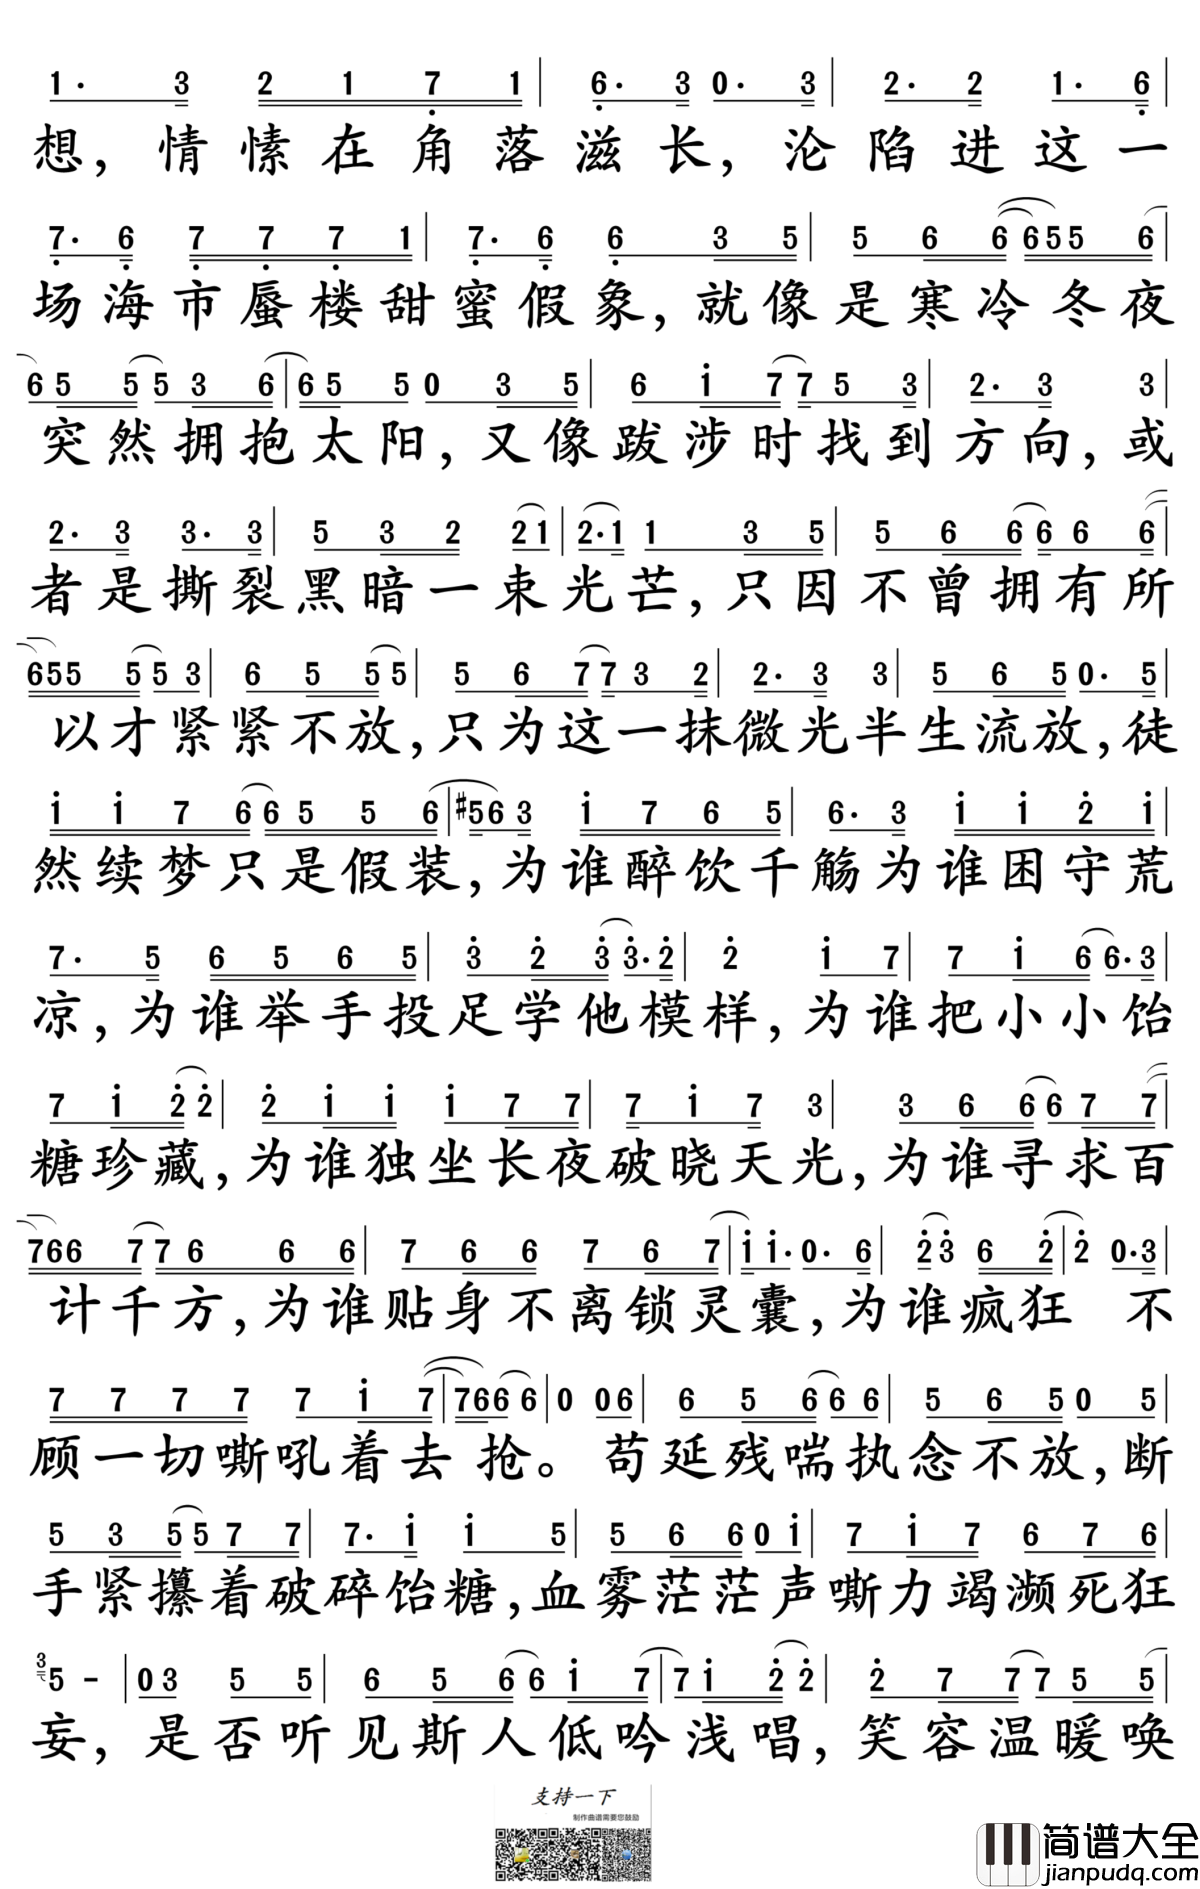 1· 3 2 1 7 1 | 6· 3 0· 3 | 2· 2 1· 6 |
想，情愫在角落滋长，沦陷进这一
7· 6 7 7 7 1 | 7· 6 6 3 5 | 5 6 6 6 5 5 6 |
场海市蜃楼甜蜜假象，就像是寒冷冬夜
6 5 5 5 3 6 | 6 5 5 0 3 5 | 6 i 7 7 5 3 | 2· 3 3 |
突然拥抱太阳，又像跋涉时找到方向，或
2· 3 3· 3 | 5 3 2 2 1 | 2· 1 1 3 5 | 5 6 6 6 6 6 |
者是撕裂黑暗一束光芒，只因不曾拥有所
6 5 5 5 5 3 | 6 5 5 5 | 5 6 7 7 3 2 | 2· 3 3 | 5 6 5 0· 5 |
以才紧紧不放，只为这一抹微光半生流放，徒
i i 7 6 6 5 5 6 | #5 6 3 i 7 6 5 | 6· 3 i i 2 i |
然续梦只是假装，为谁醉饮千觞为谁困守荒
7· 5 6 5 6 5 | 3 2 3 3· 2 | 2 i 7 | 7 i 6 6· 3 |
凉，为谁举手投足学他模样，为谁把小小饴
7 i 2 2 | 2 i i i 7 7 | 7 i 7 3 | 3 6 6 6 7 7 |
糖珍藏，为谁独坐长夜破晓天光，为谁寻求百
7 6 6 7 7 6 6 6 | 7 6 6 7 6 7 | i i· 0· 6 | 2 3 6 2 | 2 0· 3 |
计千方，为谁贴身不离锁灵囊，为谁疯狂 不
7 7 7 7 7 i 7 | 7 6 6 6 | 0 0 6 | 6 5 6 6 6 | 5 6 5 0 5 |
顾一切嘶吼着去抢。苟延残喘执念不放，断
5 3 5 5 7 7 | 7· i i 5 | 5 6 6 0 i | 7 i 7 6 7 6 |
手紧攥着破碎饴糖，血雾茫茫声嘶力竭濒死狂
3 5 - | 0 3 5 5 | 6 5 6 6 i 7 | 7 i 2 2 | 2 7 7 7 5 5 |
妄，是否听见斯人低吟浅唱，笑容温暖唤
支持一下
制作曲谱需要您鼓励
简谱大全
jianpudq.com